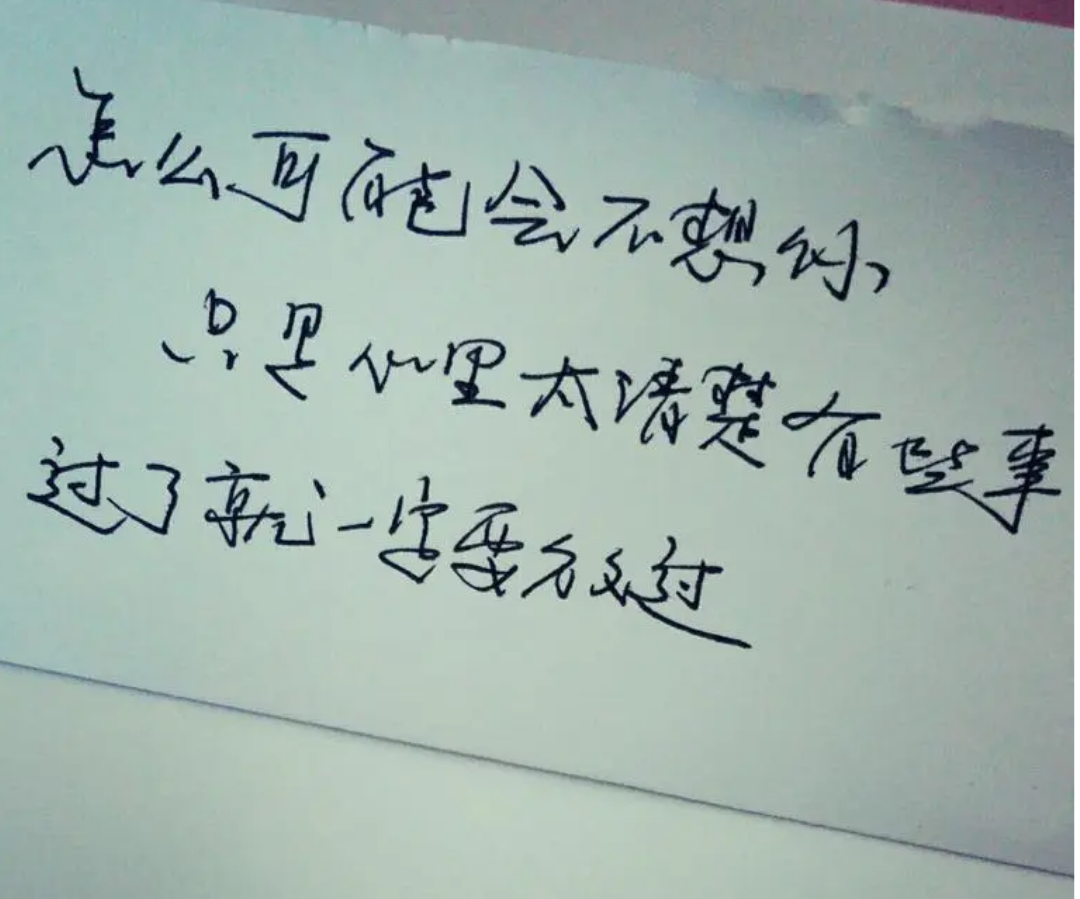 怎么可能会不想你,
只是心里太清楚有些事
过了就一定要放过